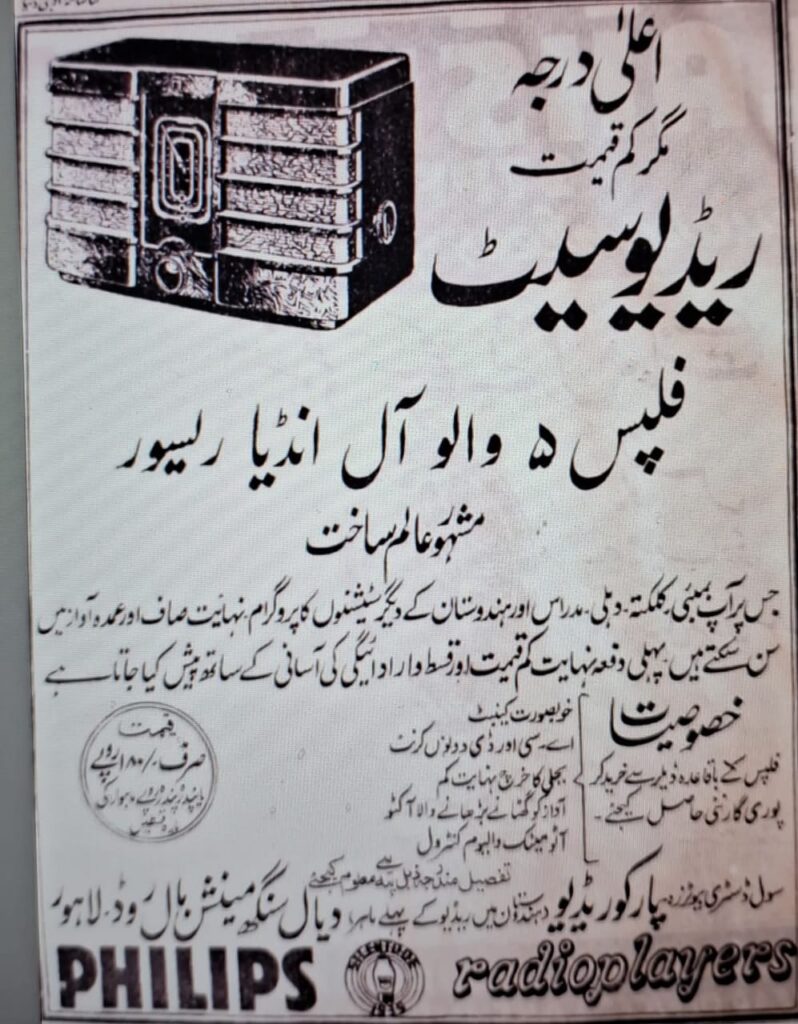 اعلیٰ درجہ
مگر کم قیمت
ریڈیو سیٹ
فلپس ۵ والو آل انڈیا ریسور
مشہور عالم ساخت
جس پر آپ بمبئی۔ کلکتہ۔ دہلی۔ مدراس اور ہندوستان کے دیگر سٹیشنوں کا پروگرام نہایت صاف اور عمدہ آواز میں
سن سکتے ہیں۔ پہلی دفعہ نہایت کم قیمت اور قسط وار ادائیگی کی آسانی کے ساتھ پیش کیا جاتا ہے
خصوصیات
فلپس کے باقاعدہ ڈیلر سے خرید کر
پوری گارنٹی حاصل کیجئے۔
خوبصورت کیبنٹ
اے۔ سی اور ڈی سی دونوں کرنٹ
بجلی کا خرچ نہایت کم
آواز کو گھٹانے بڑھانے والا آکٹو
آٹومیٹک والیوم کنٹرول
قیمت
صرف ۱۸۰/۰ روپے
تفصیل مندرجہ ذیل پتہ سے معلوم کیجئے
سول ڈسٹری بیوٹرز پارکو ریڈیو ہندوستان میں ریڈیو کے پہلے ماہر، دیال سنگھ مینشن مال روڈ۔ لاہور
PHILIPS SILENTODE 1935 radioplayers